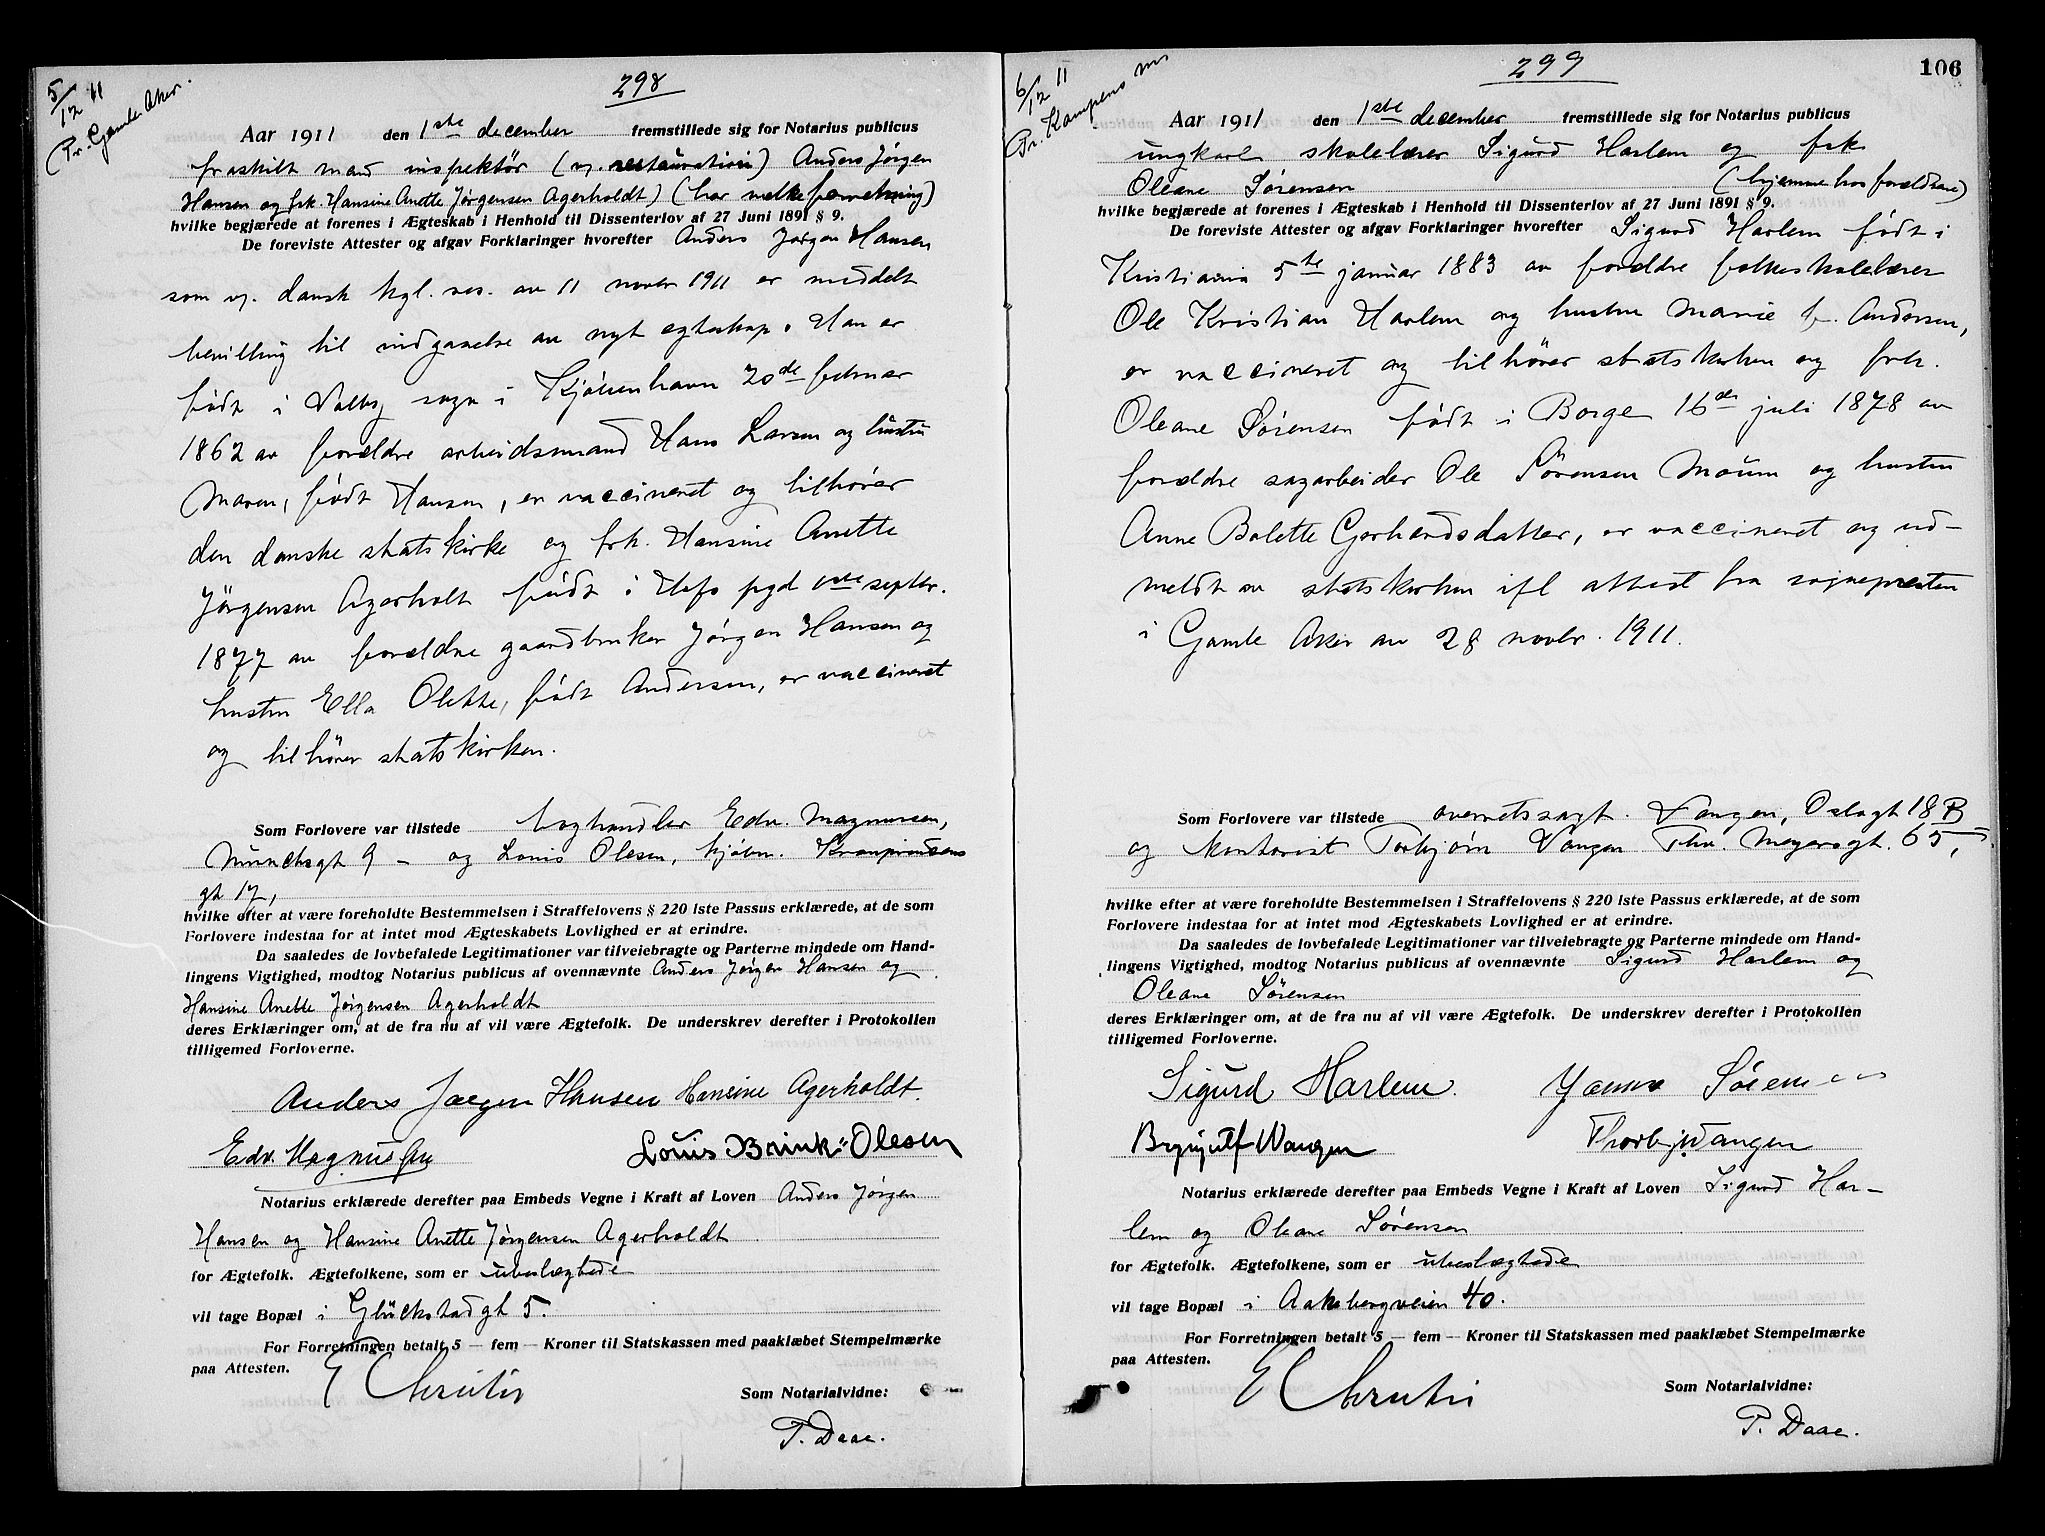 5/12 11
(Pr. Gamle Aker.
298
Aar 1911 den 1ste december fremstillede sig for Notarius publicus
fraskilt mand inspektör (v. restauration) Anders Jörgen
Hansen og frk. Hansine Anette Jörgensen Agerholdt) (har melkeforretning)
hvilke begjærede at forenes i Ægteskab i Henhold til Dissenterlov af 27 Juni 1891 § 9.
De foreviste Attester og afgav Forklaringer hvorefter Anders Jörgen Hansen
som v. dansk kgl. res. av 11 novbr 1911 er meddelt
bevilling til indgaaelse av nyt egteskap. Han er
født i Valby sogn i Kjöbenhavn 20de februar
1862 av forældre arbeidsmand Hans Larsen og hustru
Maren, född Hansen, er vaccineret og tilhører
den danske statskirke og frk. Hansine Anette
Jörgensen Agerholt född i pgd septbr.
1877 av forældre gaardbruker Jörgen Hansen og
hustru Ella Olette, född Andersen, er vaccineret
og tilhörer statskirken.
Som Forlovere var tilstede boghandler Edv. Magnussen,
Munchsgt 9 – og Louis Olesen, kjöbm. Kronprindsens
gt 17,
hvilke efter at være foreholdte Bestemmelsen i Straffelovens § 220 1ste Passus erklærede, at de som
Forlovere indestaa for at intet mod Ægteskabets Lovlighed er at erindre.
Da saaledes de lovbefalede Legitimationer var tilveiebragte og Parterne mindede om Hand-
lingens Vigtighed, modtog Notarius publicus af ovennævnte Anders Jörgen Hansen og
Hansine Anette Jörgensen Agerholdt
deres Erklæringer om, at de fra nu af vil være Ægtefolk. De underskrev derefter i Protokollen
tilligemed Forloverne.
Anders Joergen Hansen Hansine Agerholdt.
Edv. Magnussen Louis Brink-Olesen
Notarius erklærede derefter paa Embeds Vegne i Kraft af Loven Anders Jörgen
Hansen og Hansine Anette Jörgensen Agerholdt
for Ægtefolk. Ægtefolkene, som er ubeslægtede
vil tage Bopæl i Glückstadgt 5.
For Forretningen betalt 5 – fem – Kroner til Statskassen med paaklæbet Stempelmærke
paa Attesten.
E Christie
Som Notarialvidne:
P. Daae.
6/12 11
(Pr. Kampens m
299
106
Aar 1911 den 1ste december fremstillede sig for Notarius publicus
ungkarl skolelærer Sigurd Harlem og frk
Oleane Sörensen (hjemme hos forældrene)
hvilke begjærede at forenes i Ægteskab i Henhold til Dissenterlov af 27 Juni 1891 § 9.
De foreviste Attester og afgav Forklaringer hvorefter Sigurd Harlem född i
Kristiania 5te januar 1883 av forældre folkeskolelærer
Ole Kristian Harlem og hustru Marie f. Andersen,
er vaccineret og tilhörer statskirken og frk.
Oleane Sörensen född i Borge 16de juli 1878 av
forældre sagarbeider Ole Sörensen Moum og hustru
Anne Bolette Gerhardsdatter, er vaccineret og ud-
meldt av statskirken ifl attest fra sognepresten
i Gamle Aker av 28 novbr. 1911.
Som Forlovere var tilstede overretssagf. Vangen, Oslogt 18 B
og kontorist Torbjörn Vangen Thv. Meyersgt. 65,
hvilke efter at være foreholdte Bestemmelsen i Straffelovens § 220 1ste Passus erklærede, at de som
Forlovere indestaa for at intet mod Ægteskabets Lovlighed er at erindre.
Da saaledes de lovbefalede Legitimationer var tilveiebragte og Parterne mindede om Hand-
lingens Vigtighed, modtog Notarius publicus af ovennævnte Sigurd Harlem og
Oleane Sörensen
deres Erklæringer om, at de fra nu af vil være Ægtefolk. De underskrev derefter i Protokollen
tilligemed Forloverne.
Sigurd Harlem. Sörensen
Brynjulf Wangen Thorbj. Wangen
Notarius erklærede derefter paa Embeds Vegne i Kraft af Loven Sigurd Har-
lem og Oleane Sörensen
for Ægtefolk. Ægtefolkene, som er ubeslægtede
vil tage Bopæl i Aakebergveien 40.
For Forretningen betalt 5 – fem – Kroner til Statskassen med paaklæbet Stempelmærke
paa Attesten.
E Christie
Som Notarialvidne:
P. Daae.